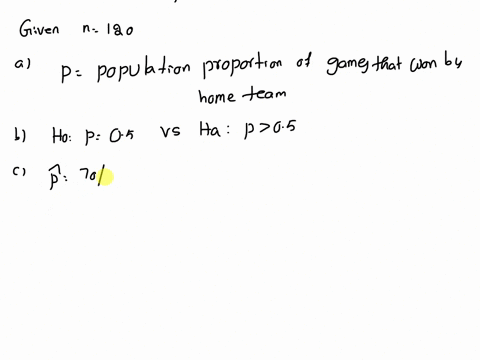 Given n= 120
a) p= population proportion of games that won by
home team
b) Ho: p= 0.5 vs Ha: p>0.5
c) p̂: 70/